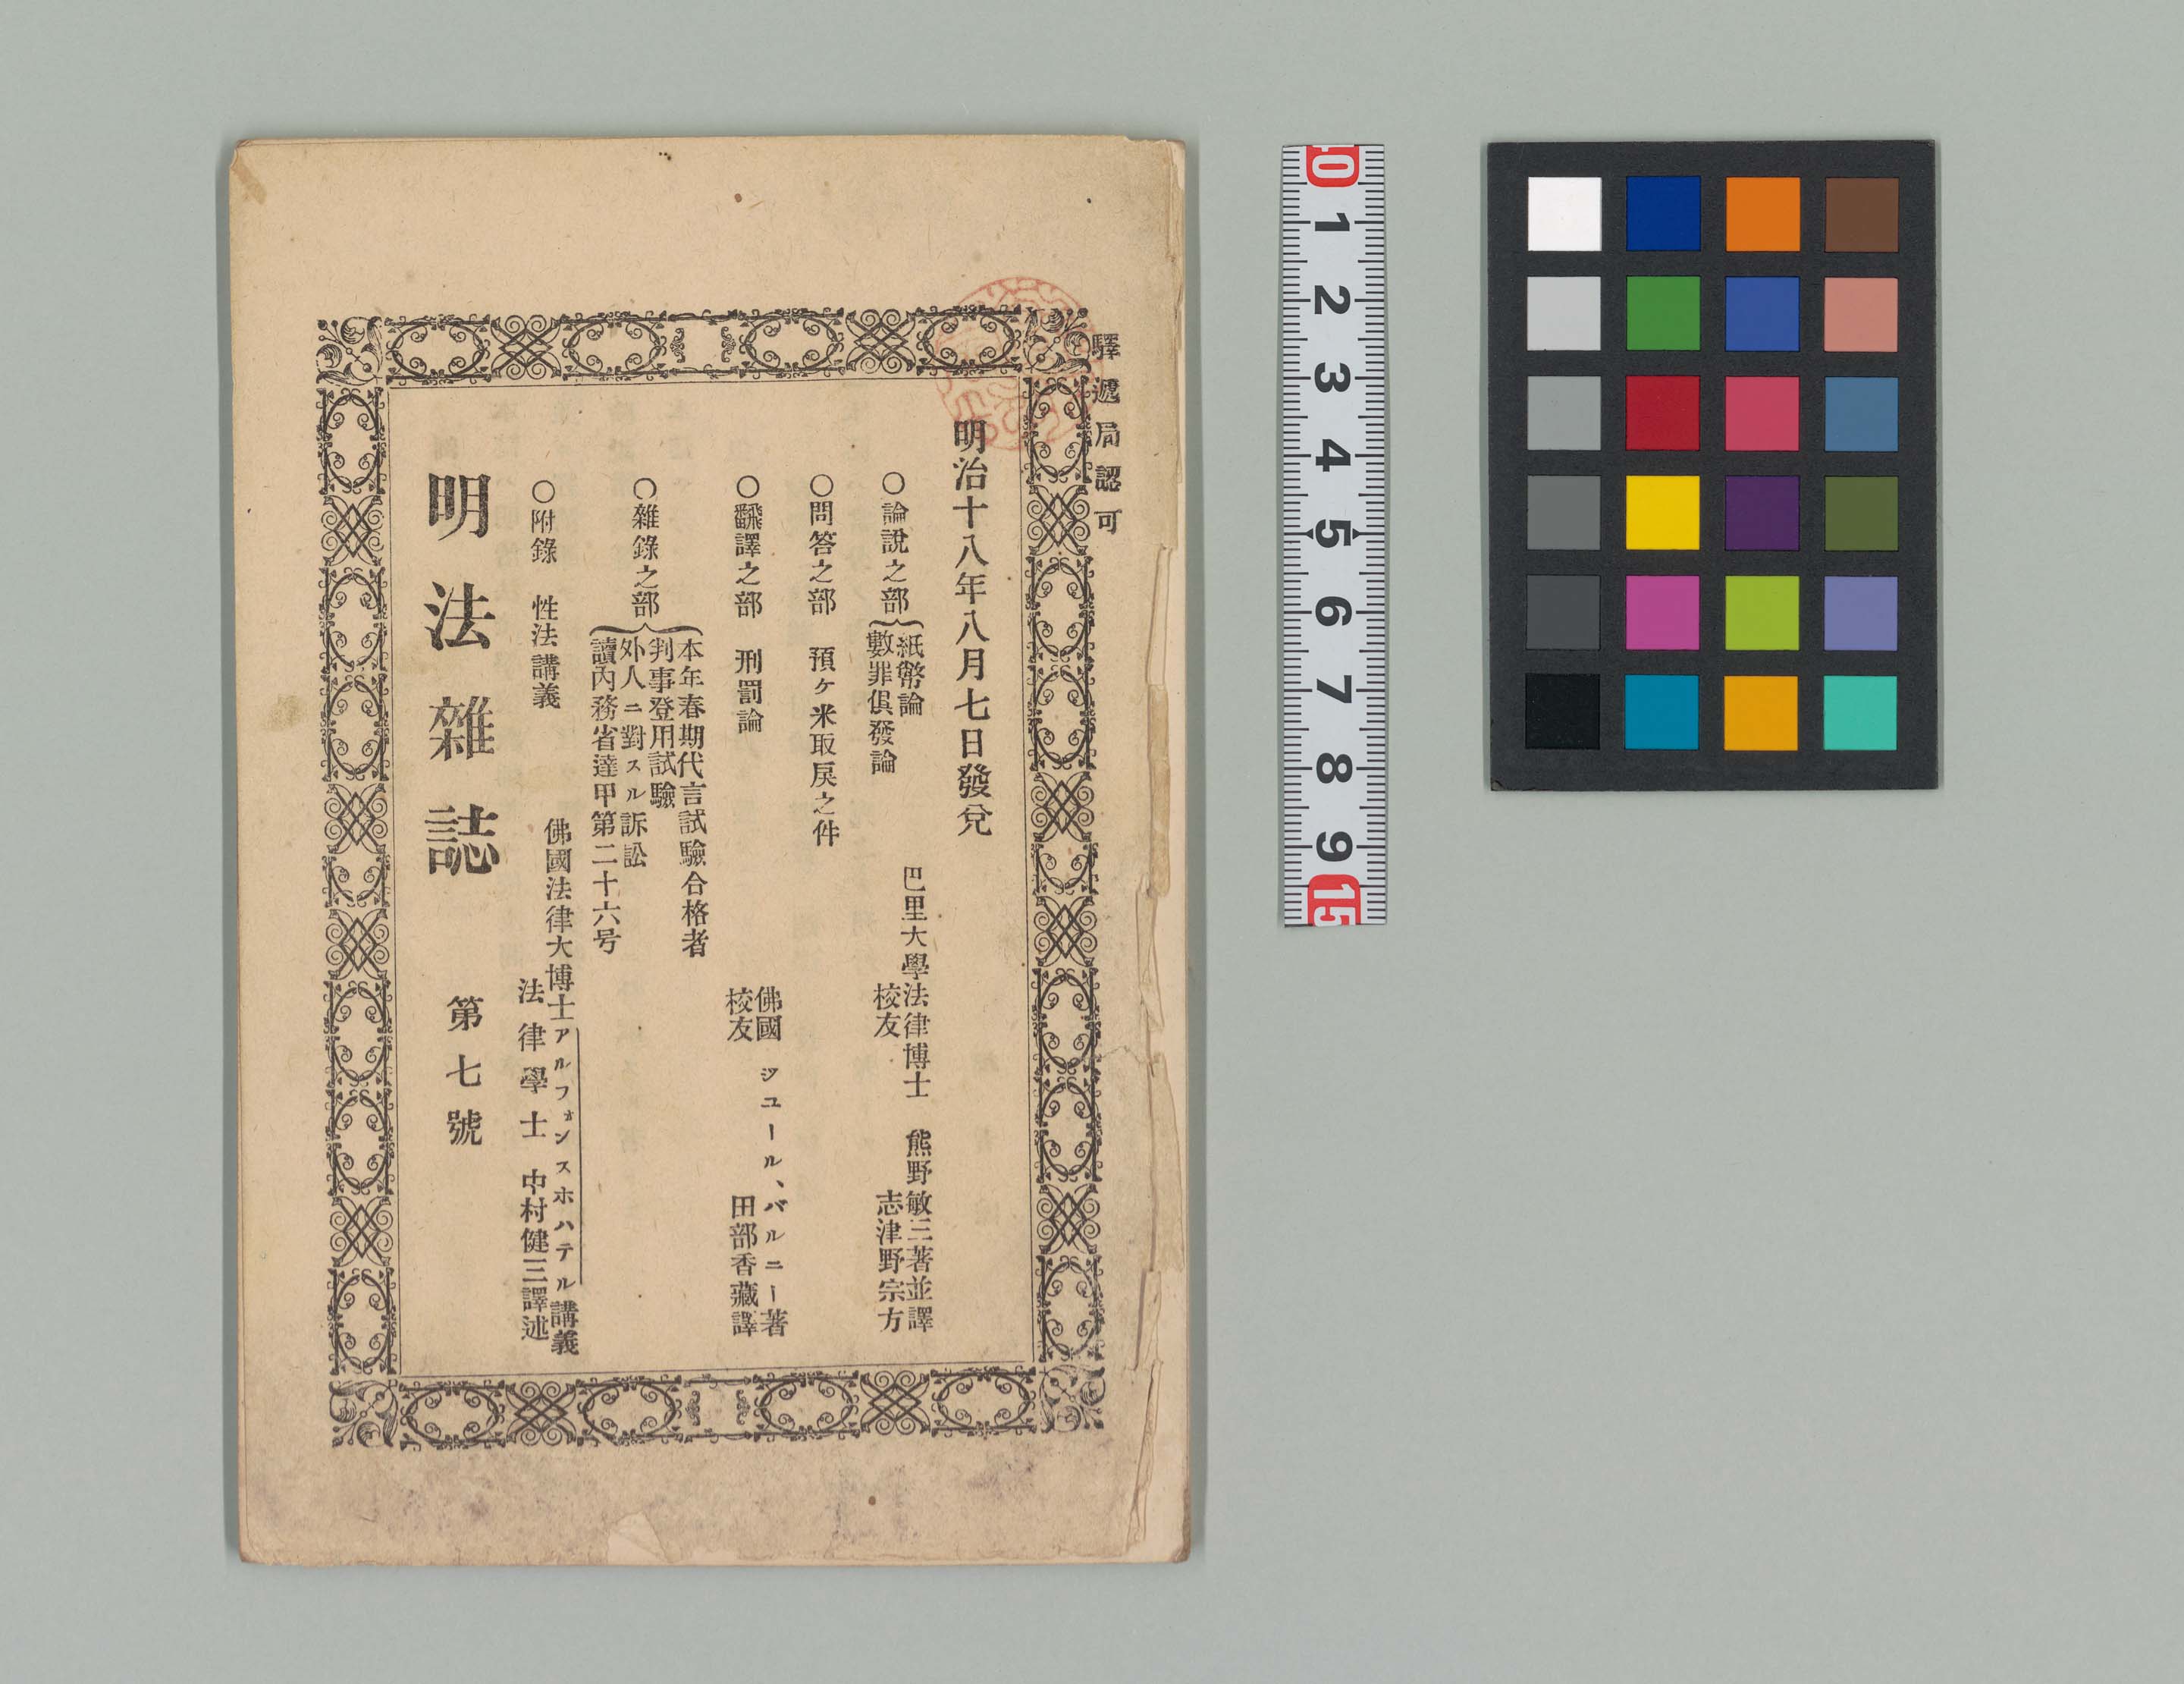 驛遞局認可
明治十八年八月七日發兌
○論說之部
紙幣論 巴里大學法律博士 熊野敏三著並譯
數罪俱發論 校友 志津野宗方
○問答之部 預ケ米取戾之件
○飜譯之部 刑罰論
佛國 ジユール、バルニー著
校友 田部香藏譯
○雜錄之部
本年春期代言試驗合格者
判事登用試驗
外人ニ對スル訴訟
讀內務省達甲第二十六号
○附錄 性法講義
佛國法律大博士アルフォンスホハテル講義
法律學士 中村健三譯述
明法雜誌 第七號
10
1
2
3
4
5
6
7
8
9
15